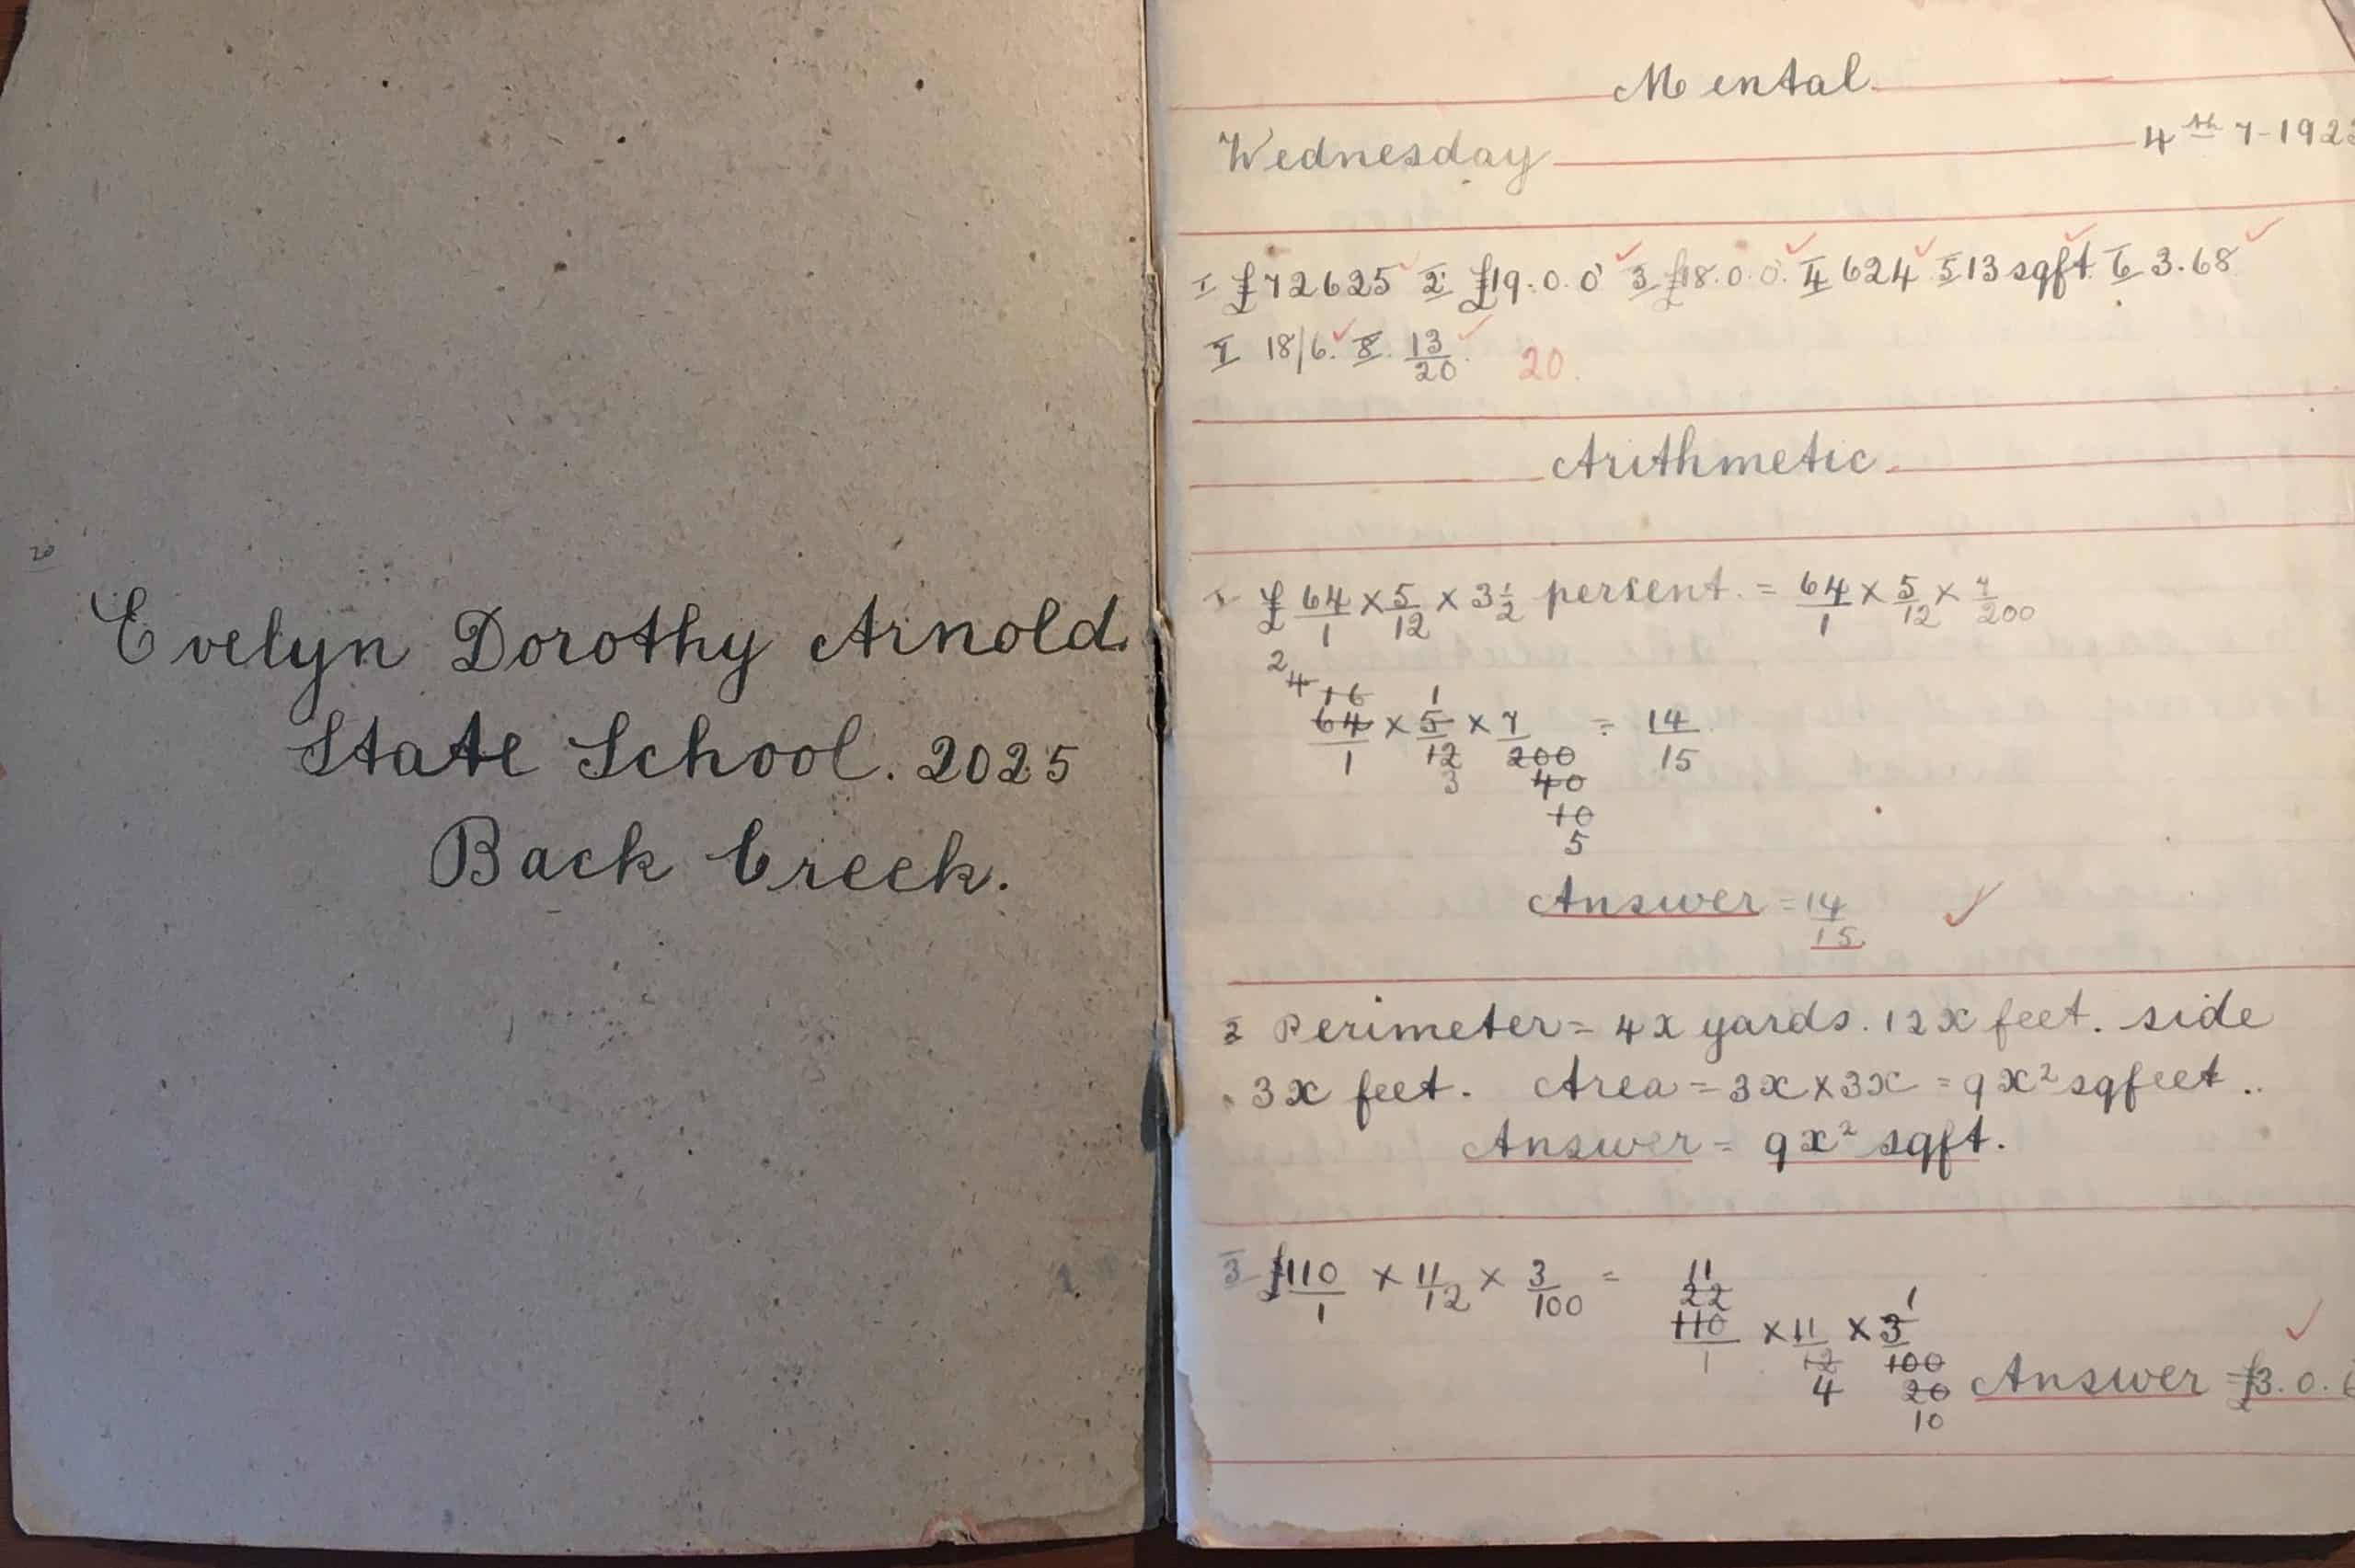 20
Evelyn Dorothy Arnold.
State School. 2025
Back Creek.
Mental
Wednesday 4th 7-1923
1 £72625 2 £19.0.0 3 £18.0.0 4 624 5 13 sqft 6 3.68
7 18/6. 8. 13/20. 20.
Arithmetic
1 £ 64/1 × 5/12 × 3 1/2 persent. = 64/1 × 5/12 × 7/200
2
4 16 1
64/1 × 5/12 × 7/200 = 14/15
3 40
10
5
Answer = 14/15
2 Perimeter = 4x yards. 12x feet. side
3x feet. Area = 3x × 3x = 9x² sqfeet..
Answer = 9x² sqft.
3 £110/1 × 11/12 × 3/100 =
11
22 1
110/1 × 11/12 × 3/100
4 20
10
Answer = £3.0.6